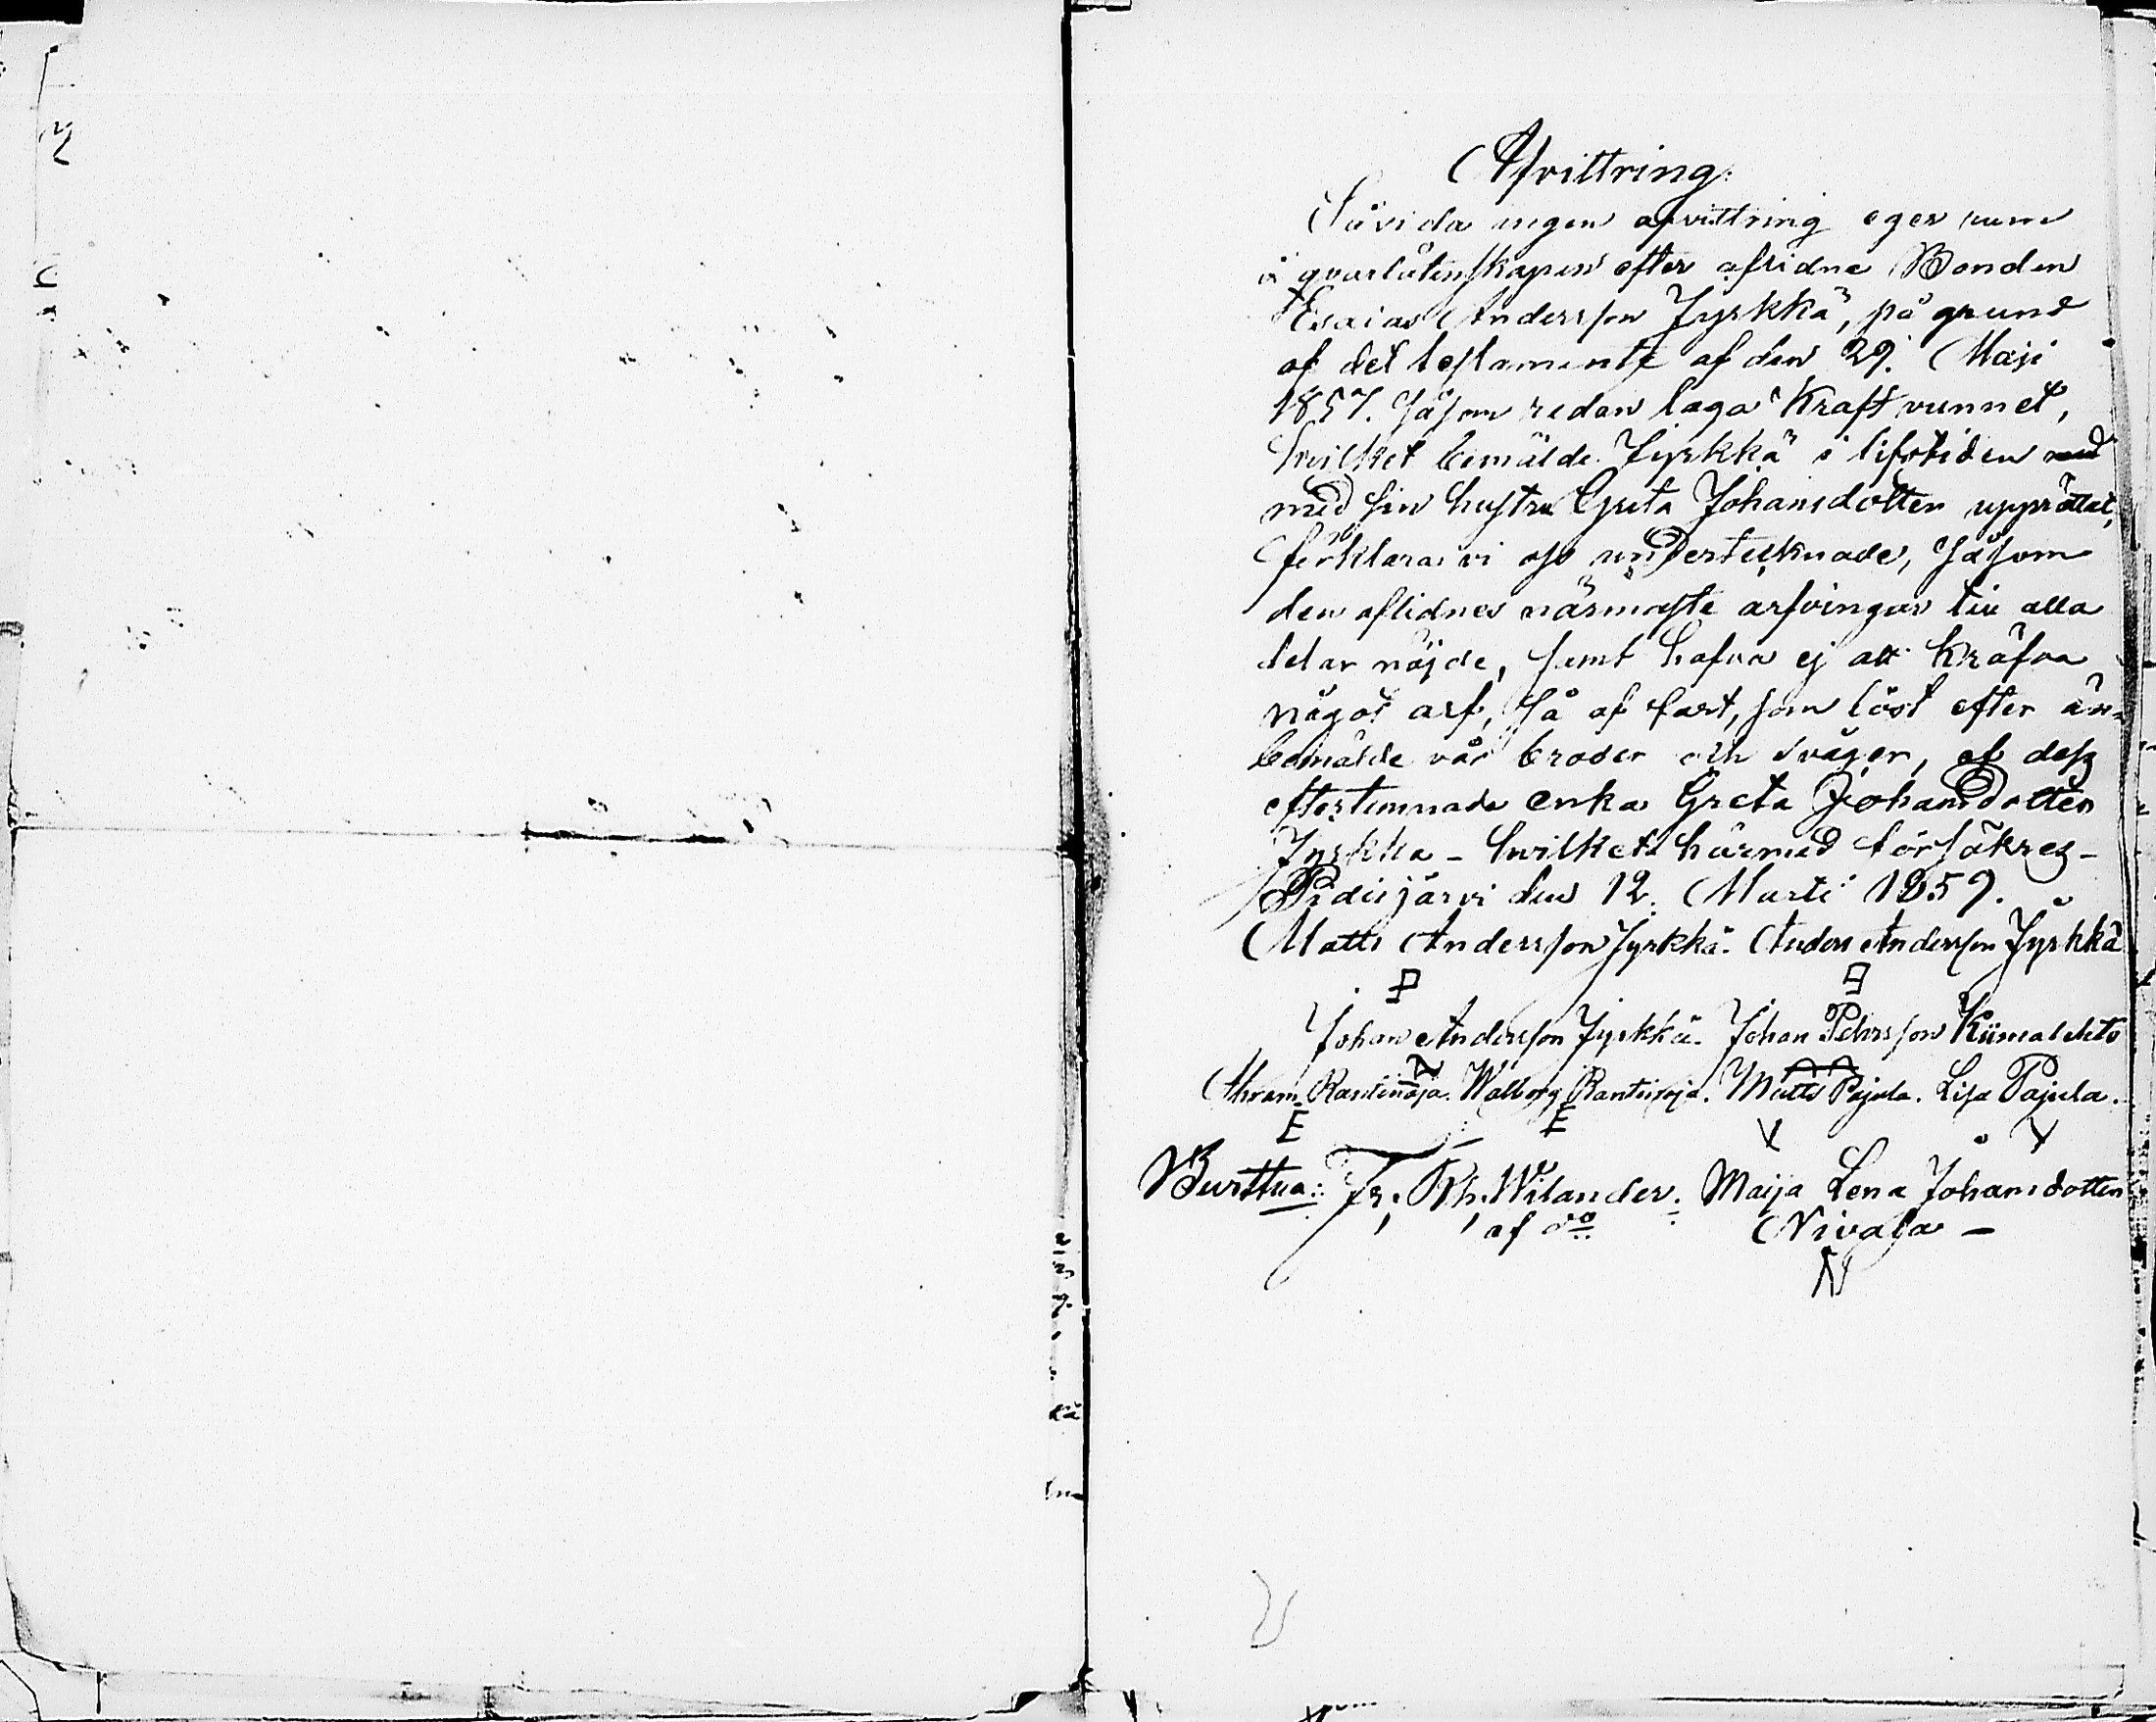 Afvittring:
Såvida ingen afvittring eger rum
i qvarlåtenskapen efter aflidne Bonden
Esaias Andersson Jyrkkä, på grund
af det testamente af den 29. Maji
1857. såsom redan laga Kraft vunnet,
hvilket bemälde Jyrkkä i lifstiden med
med sin hustru Greta Johansdotter upprättat,
förklara vi oss undertecknade, såsom
den aflidnes närmaste arfvingar till alla
delar nöjde, samt hafva ej att kräfva
något arf, så af fast, som löst efter än-
bemälde vår broder och svåger, af dess
efterlemnade enka Greta Johansdotter
Jyrkkä - hvilket härmed försäkras -
Pidisjärvi den 12. Marti 1859.
Matts Andersson Jyrkkä. Anders Andersson Jyrkkä
Johan Andersson Jyrkkä. Johan Pehrsson Kiimalehto
Abram Rantinoja. Walborg Rantinoja. Matts Pajula. Lisa Pajula.
E E V V
Bevittna: Fr. Wilander. Maija Lena Johansdotter
af do Nivala -
N